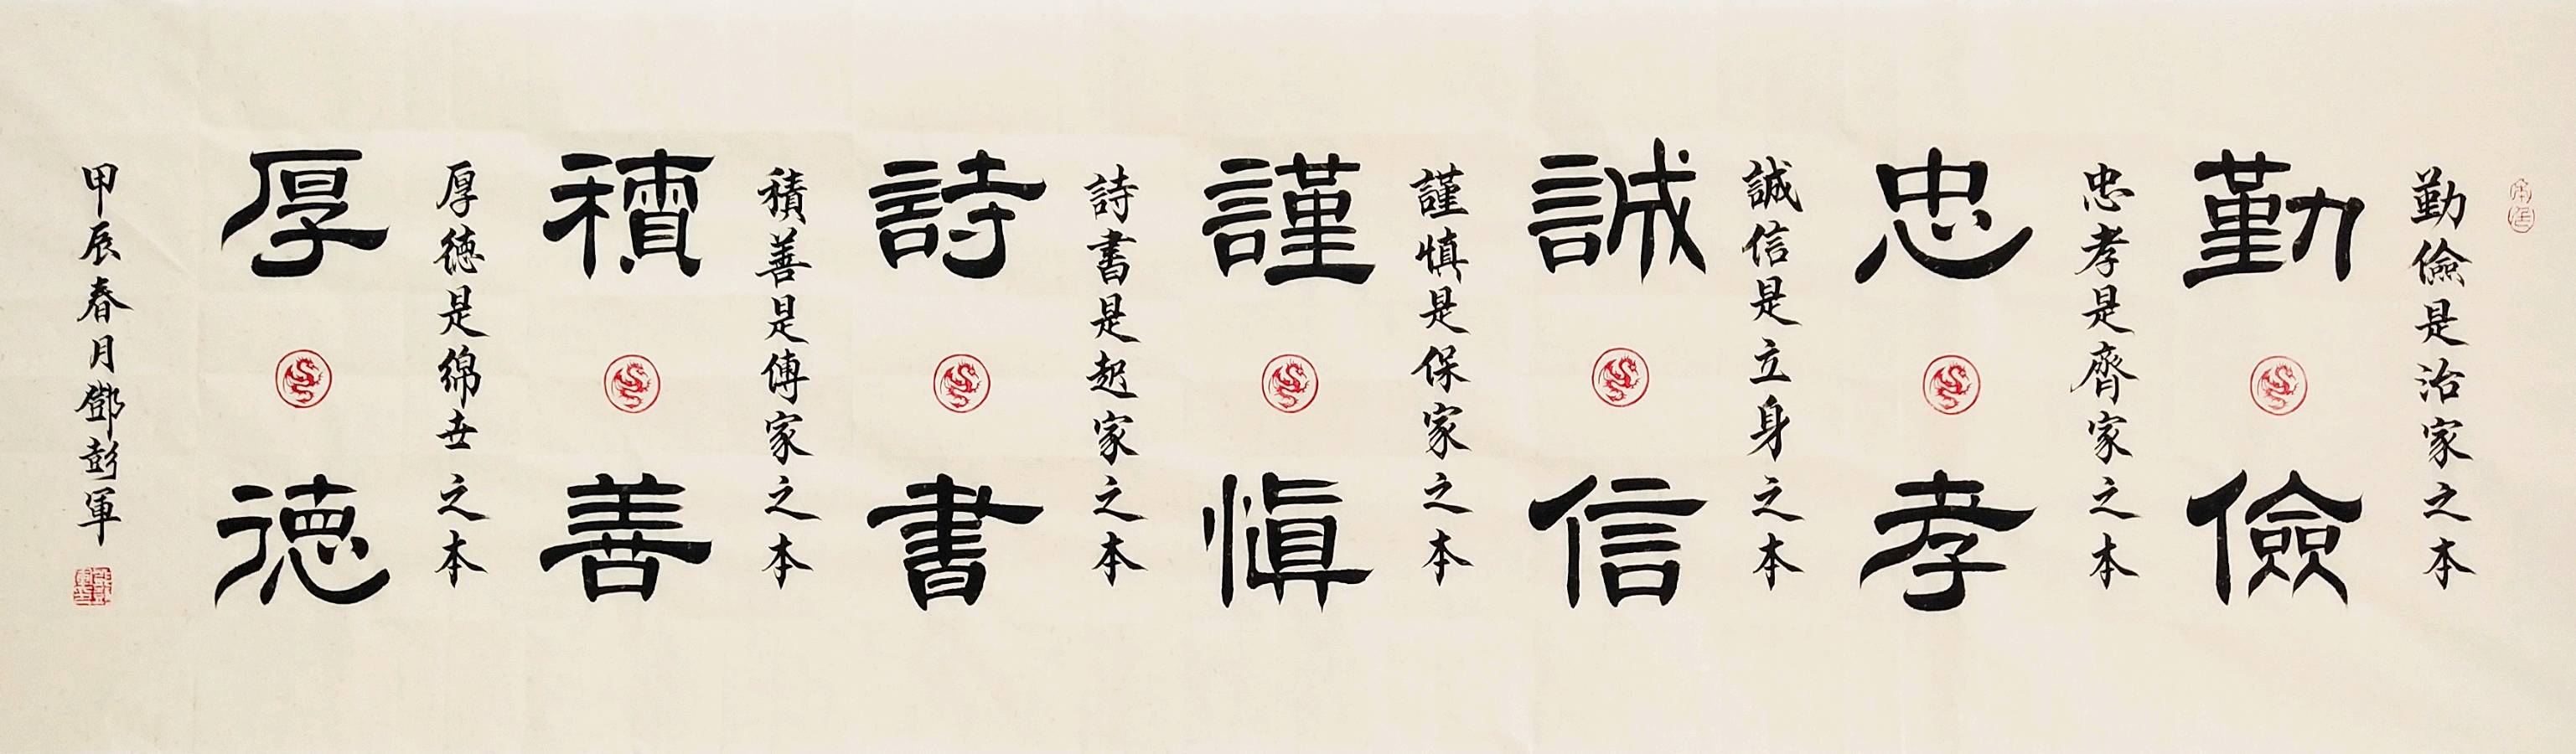 勤儉是治家之本
勤儉
忠孝是齊家之本
忠孝
誠信是立身之本
誠信
謹慎是保家之本
謹慎
詩書是起家之本
詩書
積善是傳家之本
積善
厚德是綿世之本
厚德
甲辰春月鄧彭軍